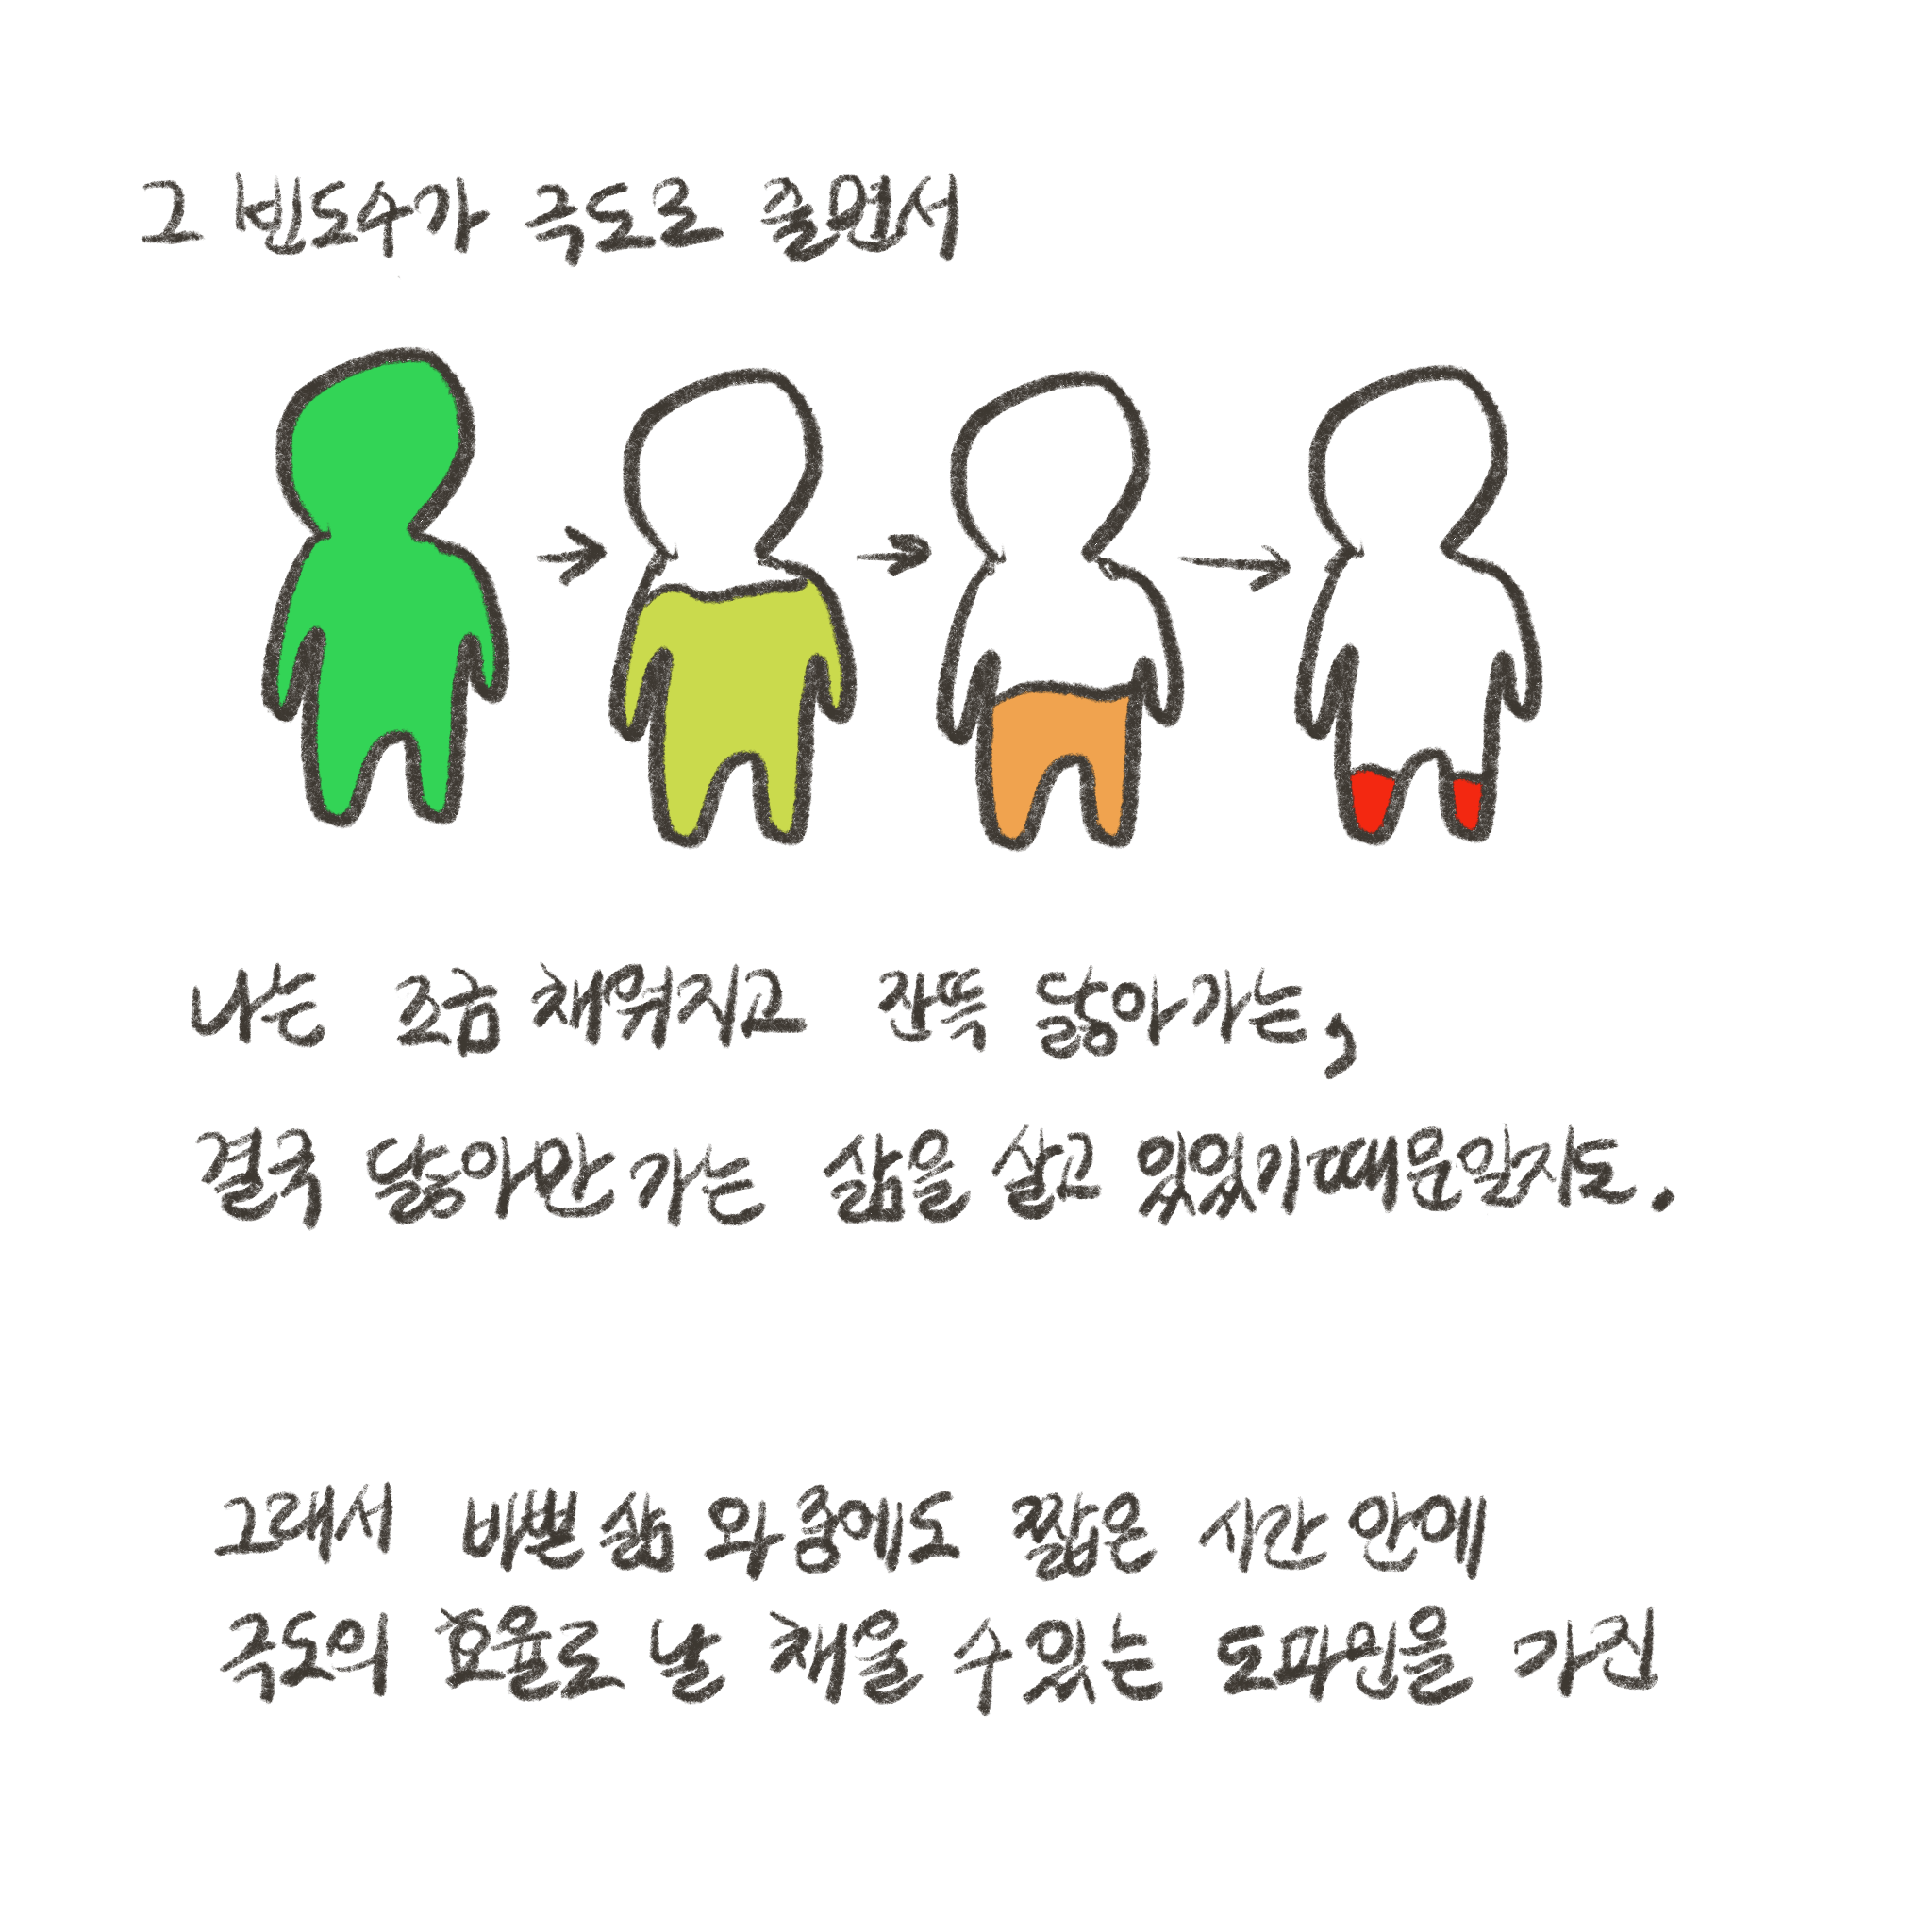 그 빈도수가 극도로 줄면서
나는 조금 채워지고 잔뜩 닳아가는,
결국 닳아만 가는 삶을 살고 있었기때문일지도.
그래서 바쁜 삶 와중에도 짧은 시간 안에
극도의 효율로 날 채울 수 있는 도파민을 가진